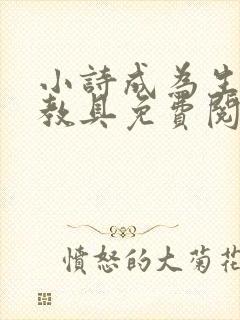 小詩成為生
教具免費閱
憤怒的大菊花